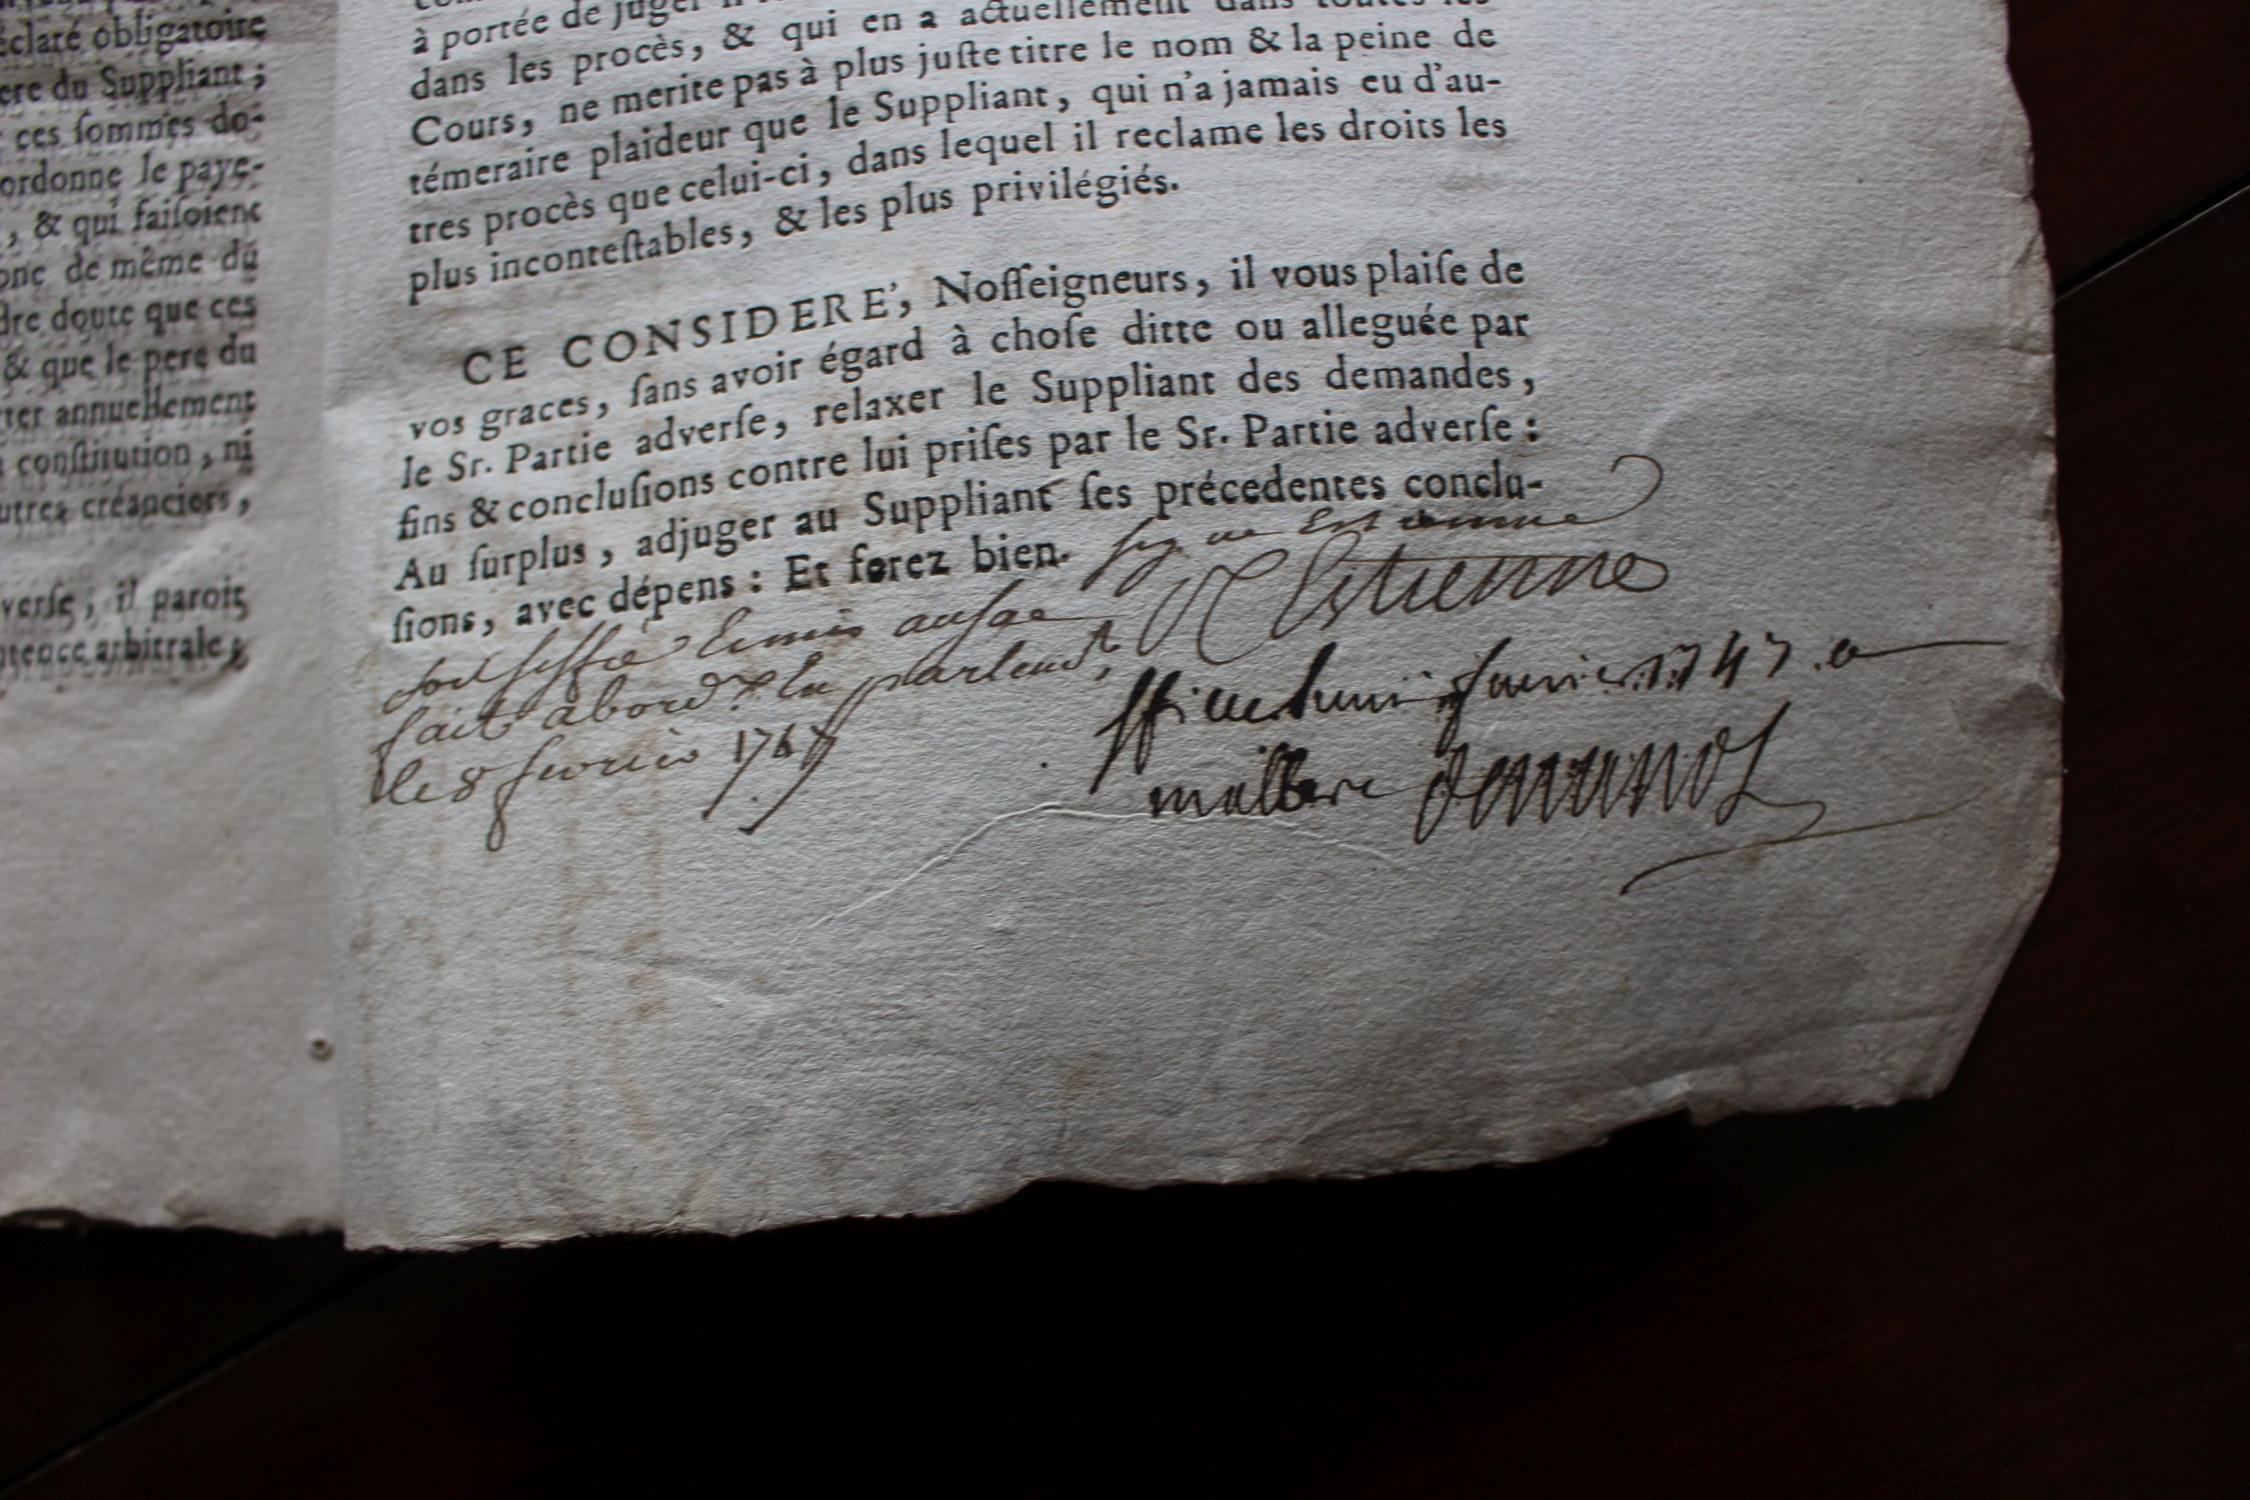 éclaré obligatoire
ere du Suppliant ;
ces ſommes do-
ordonne le paye-
, & qui faiſoient
onc de même du
dre doute que ces
& que le pere du
ter annuellement
conſtitution , ni
utres créanciers ,
verſe , il paroit
ntence arbitrale ;
à portée de juger
dans les procès, & qui en a actuellement dans toutes les
Cours, ne merite pas à plus juſte titre le nom & la peine de
témeraire plaideur que le Suppliant, qui n'a jamais eu d'au-
tres procès que celui-ci, dans lequel il reclame les droits les
plus inconteſtables, & les plus privilégiés.
CE CONSIDERE', Noſſeigneurs, il vous plaiſe de
vos graces, ſans avoir égard à choſe ditte ou alleguée par
le Sr. Partie adverſe, relaxer le Suppliant des demandes,
fins & concluſions contre lui priſes par le Sr. Partie adverſe :
Au ſurplus, adjuger au Suppliant ſes précedentes conclu-
ſions, avec dépens : Et ferez bien.
Estienne
fait a bord
le 8 fevrier 1747
1747